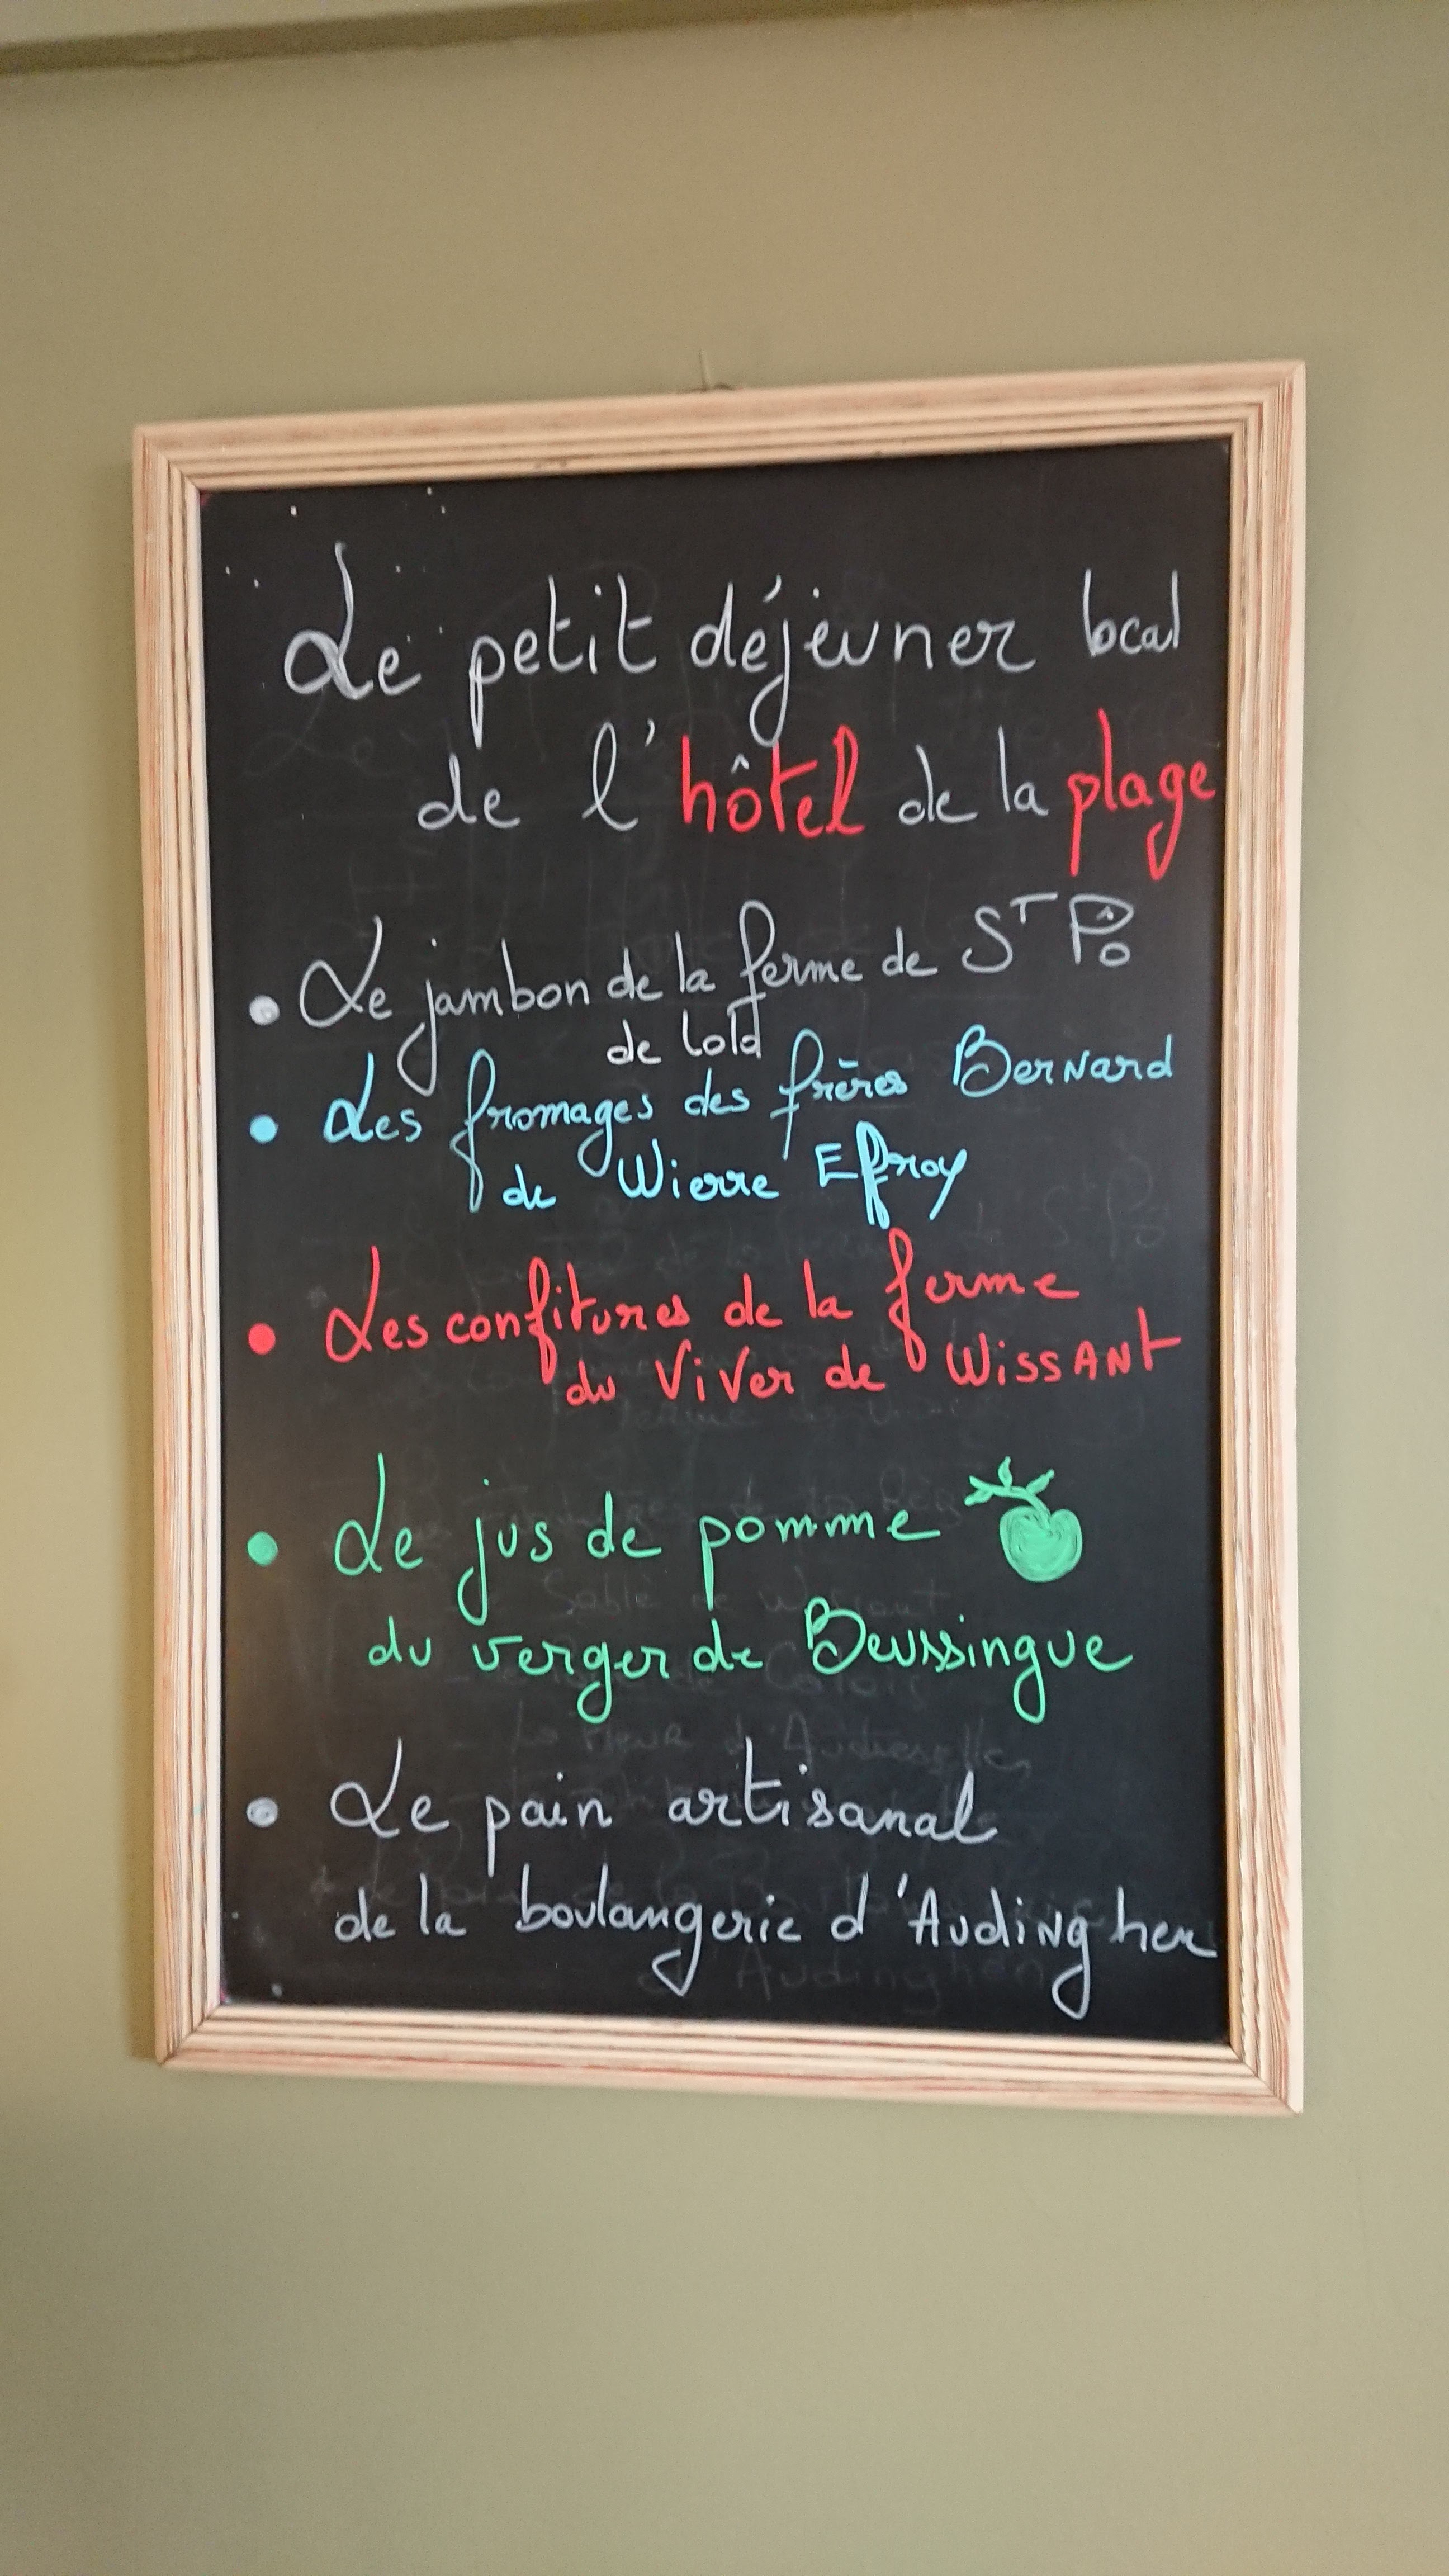 Le petit déjeuner local
de l'hôtel de la plage
• Le jambon de la ferme de ST Pô
de Lola
• Les fromages des frères Bernard
de Wierre Effroy
• Les confitures de la ferme
du ViVer de WissANt
• Le jus de pomme
du verger de Beussingue
• Le pain artisanal
de la boulangerie d'Audinghen